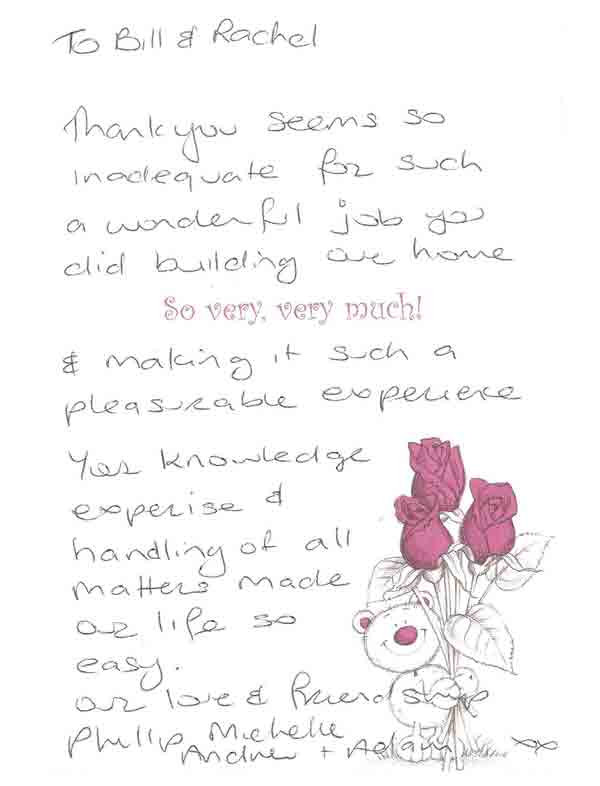 To Bill & Rachel
Thankyou seems so
inadequate for such
a wonderful job you
did building our home
So very, very much!
& making it such a
pleasurable experience
Your knowledge
experise &
handling of all
matters made
our life so
easy.
our love & friendship
Philip Michelle
Andrew + Adam xx